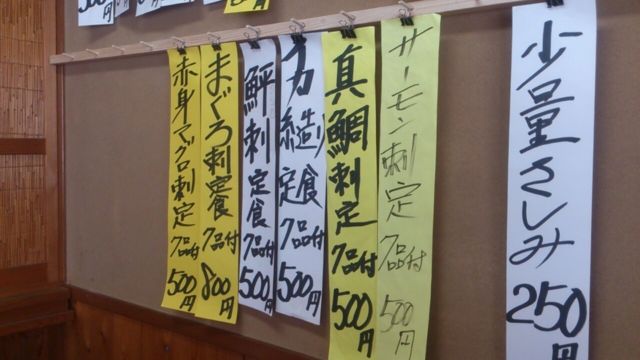 少量さしみ
250円
サーモン刺定
7品付
500円
真鯛刺定
7品付
500円
イカ造り定食
7品付
500円
鮃刺定食
7品付
500円
まぐろ刺定食
7品付
800円
赤身マグロ刺定
7品付
500円